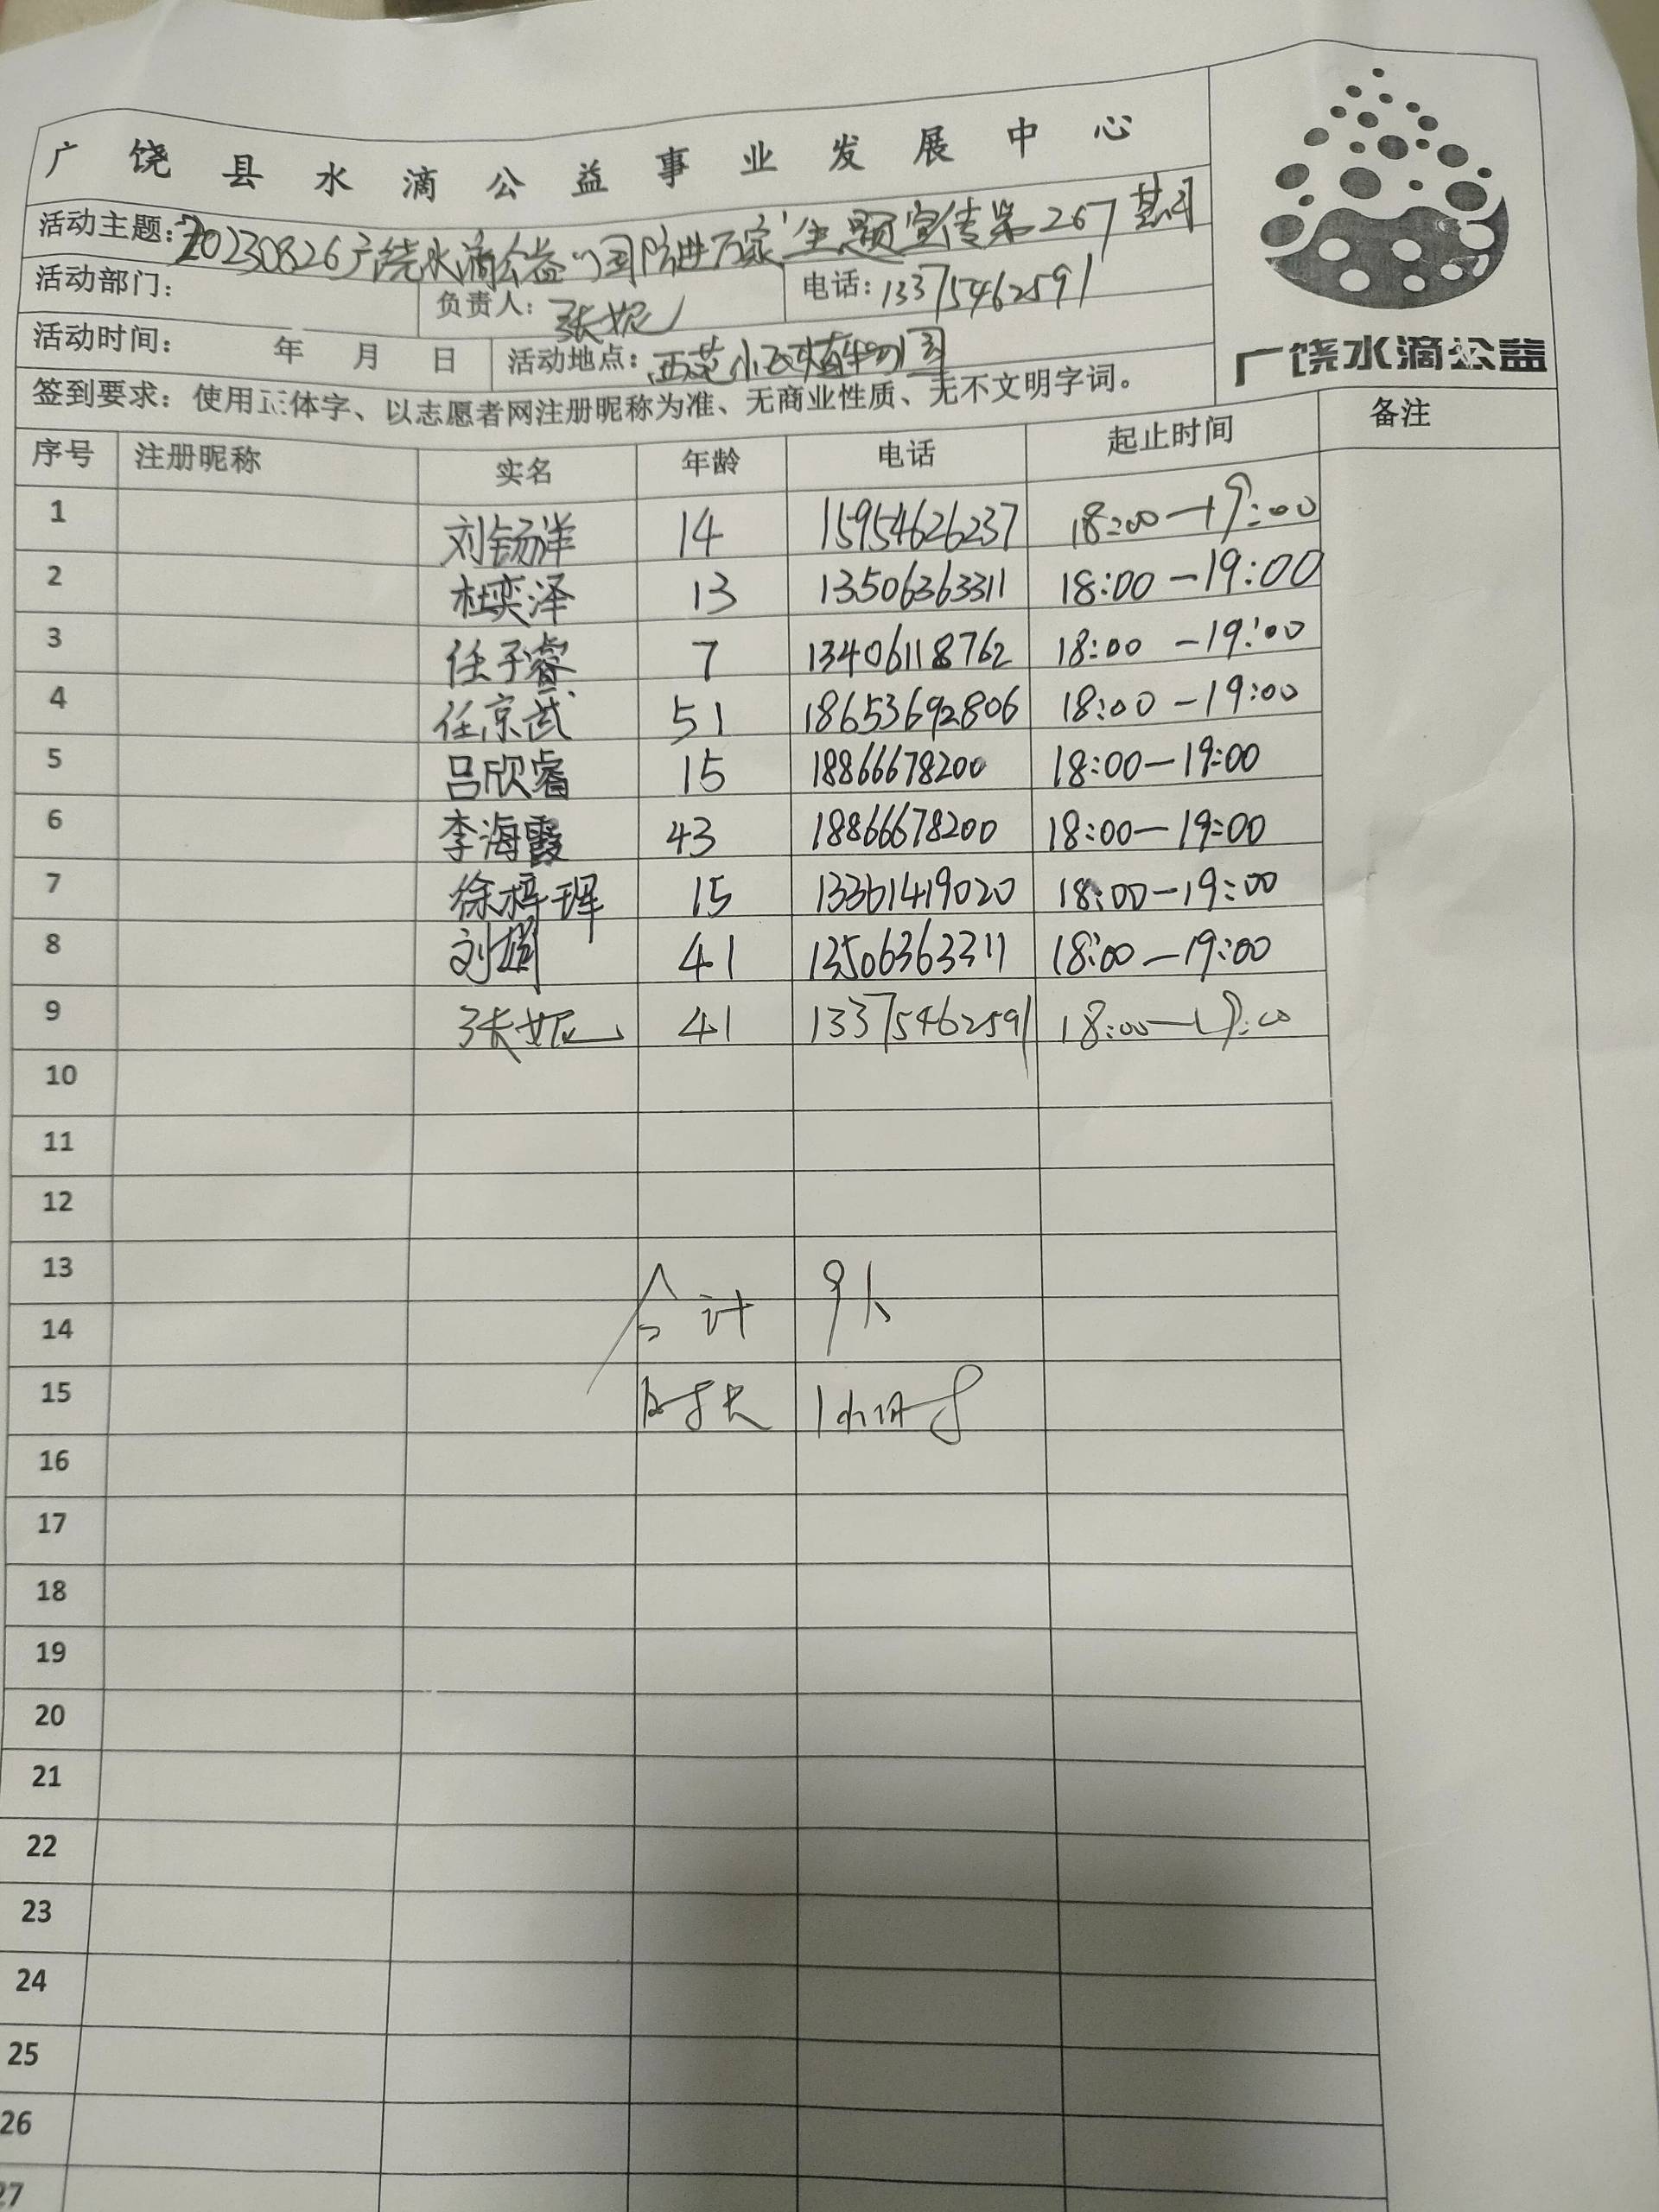 广饶县水滴公益事业发展中心
活动主题：20230826广饶水滴公益“国防进万家”主题宣传第267期
活动部门： 负责人：张妮 电话：13375462591
活动时间： 年 月 日 活动地点：西苑小区植物园
签到要求：使用正体字、以志愿者网注册昵称为准、无商业性质、无不文明字词。
广饶水滴公益
序号 注册昵称 实名 年龄 电话 起止时间 备注
1 刘钖洋 14 15954626237 18:00—19:00
2 杜奕泽 13 13506363311 18:00—19:00
3 任子睿 7 13406118762 18:00—19:00
4 任京武 51 18653692806 18:00—19:00
5 吕欣睿 15 18866678200 18:00—19:00
6 李海霞 43 18866678200 18:00—19:00
7 徐梓珲 15 13361419020 18:00—19:00
8 刘 41 13506363311 18:00—19:00
9 张妮 41 13375462591 18:00—19:00
10
11
12
13
合计 9人
14
15 时长 1小时
16
17
18
19
20
21
22
23
24
25
26
27